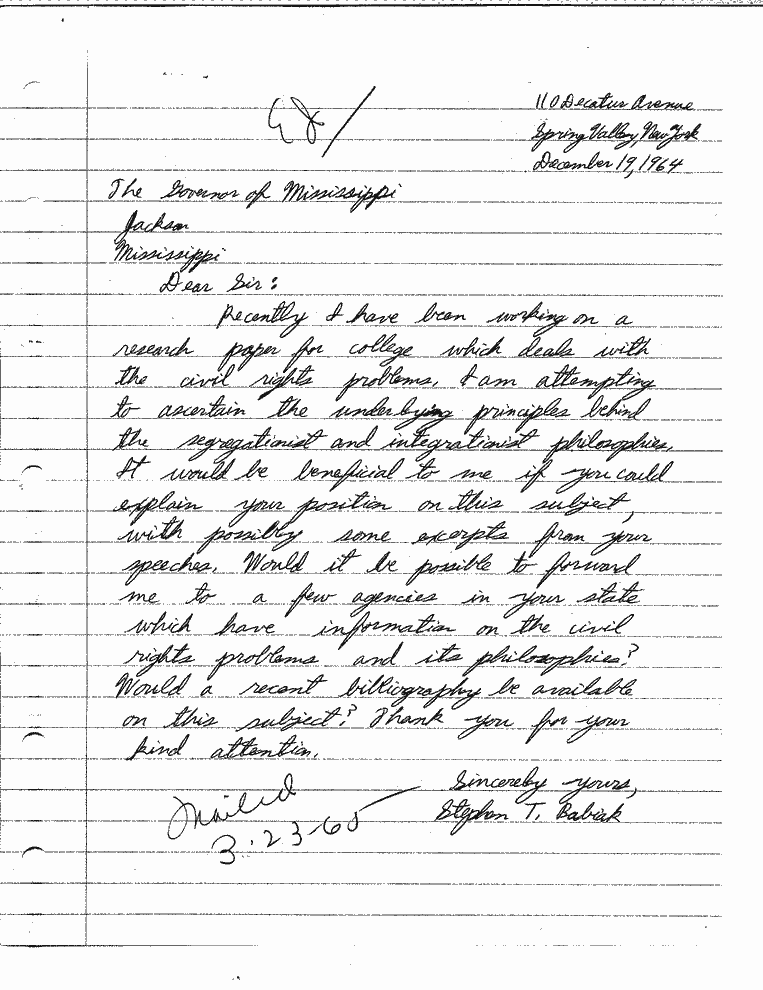 110 Decatur Avenue
Spring Valley, New York
December 19, 1964
The Governor of Mississippi
Jackson
Mississippi
Dear Sir:
Recently I have been working on a
research paper for college which deals with
the civil rights problems. I am attempting
to ascertain the underlying principles behind
the segregationist and integrationist philosophies.
It would be beneficial to me if you could
explain your position on this subject,
with possibly some excerpts from your
speeches. Would it be possible to forward
me to a few agencies in your state
which have information on the civil
rights problems and its philosophies?
Would a recent billiography be available
on this subject? Thank you for your
kind attention.
Sincerely yours,
Stephen T. Babiak
Mailed
3-23-65